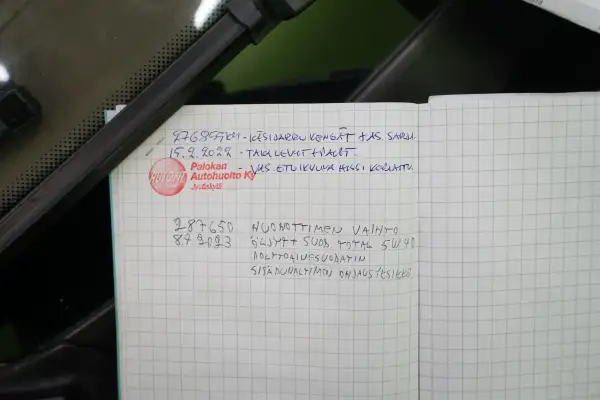 276897KM - KÄSIJARRUKENGÄT + AS. SARJA
15.2.2022 - TAKALEVYT + PALAT.
VAS. ETUIKKUNA HISSI KORJATTU.
Palokan
Autohuolto Ky
Jyväskylä
287650 NUOHOTTIMEN VAIHTO
8.7.2023 ÖLJYT + SUOD TOTAL 5W40
POLTTOAINESUODATIN
SISÄPUHALTIMEN OHJAUSYKSIKKÖ